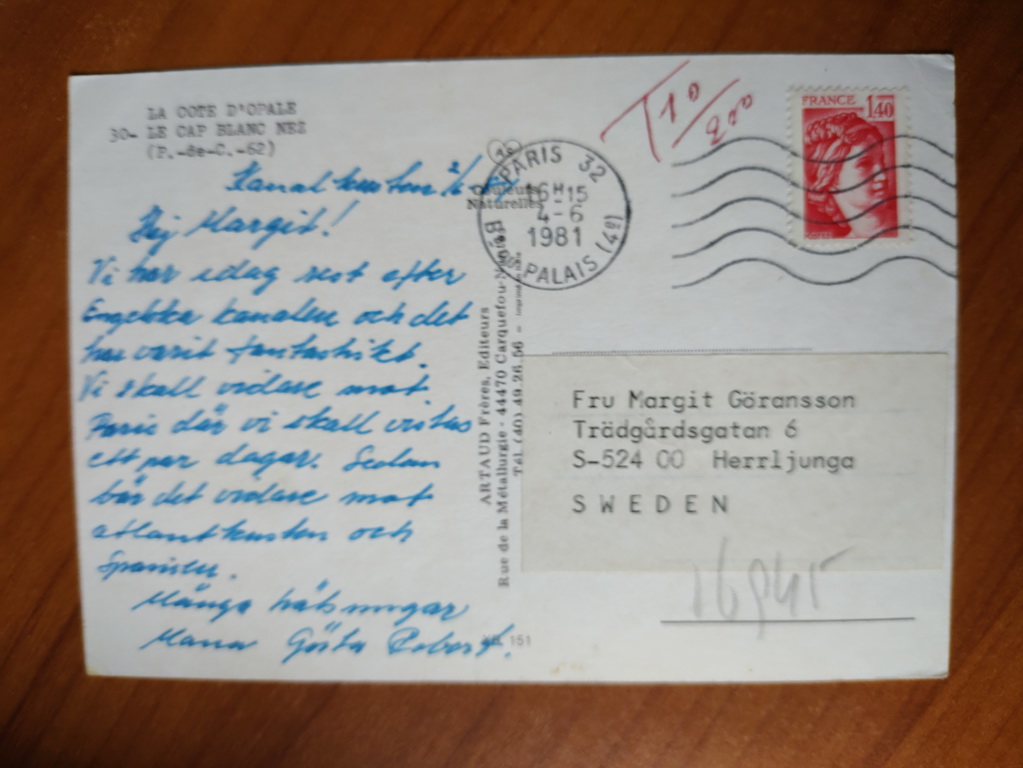 LA COTE D'OPALE
30- LE CAP BLANC NEZ
(P.-de-C.-62)
Kanalkusten 2/6
Hej Margit!
Vi har idag rest efter
Engelska kanalen och det
har varit fantastiskt.
Vi skall vidare mot
Paris där vi skall vistas
ett par dagar. Sedan
bär det vidare mot
atlantkusten och
Spanien.
Många hälsningar
Mana Gösta Robert.
Couleurs
Naturelles
ARTAUD Frères, Editeurs
Rue de la Métallurgie - 44470 Carquefou-Nantes
Tél. (40) 49.26.56 -
151
PARIS 32
16H15
4-6
1981
PALAIS (4e)
T 10/200
FRANCE 1,40
Fru Margit Göransson
Trädgårdsgatan 6
S-524 00 Herrljunga
SWEDEN